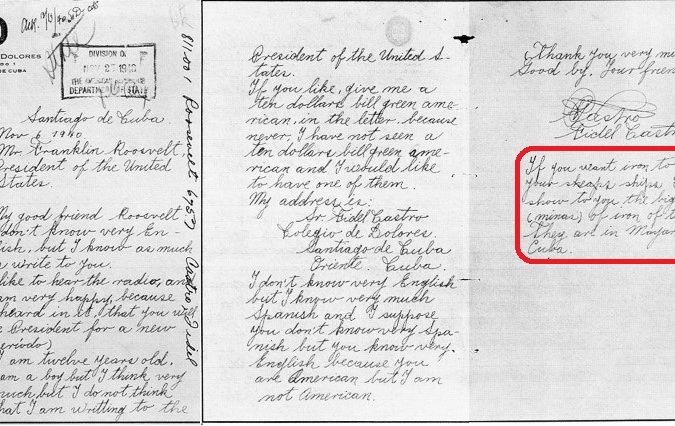 DOLORES
DE CUBA
State
DIVISION OF
NOV 27 1940
DEPARTMENT OF STATE
811.001 Roosevelt
Castro, Fidel
Santiago de Cuba.
Nov 6 1940.
Mr. Franklin Roosvelt,
President of the United
States.
My good friend Roosvelt
don't know very En-
lish, but I know as much
write to you.
like to hear the radio, and
am very happy, because
heard in it, that you will
e President for a new
(periodo)
am twelve years old.
am a boy but I think very
much but I do not think
that I am writting to the
President of the United S-
tates.
If you like, give me a
ten dollars bill green ame-
rican, in the letter, because
never, I have not seen a
ten dollars bill green ame-
rican and I would like
to have one of them.
My address is:
Sr. Fidel Castro
Colegio de Dolores.
Santiago de Cuba
Oriente. Cuba.
I don't know very English
but I know very much
Spanish and I suppose
you don't know very Spa-
nish but you know very
English because you
are American but I am
not American.
Thank you very mu
Good by. Your frien
Castro
Fidel Castr
If you want iron to
your sheaps ships,
show to you the big
(minas) of iron of t
They are in Mayar
Cuba.